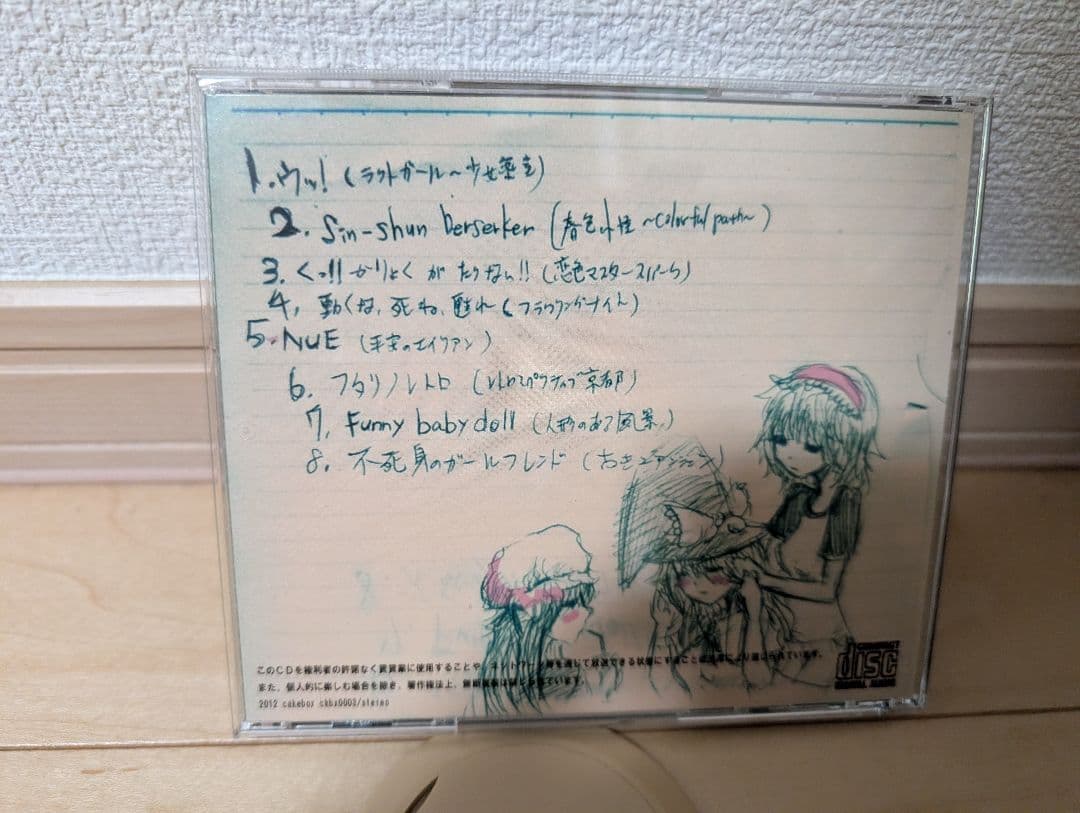 1.ウッ!(ラクトガール~少女密室)
2.Sin-shun berserker(春色小径~colorful path~)
3.くっ!!かりょくがたりない!!(恋色マスタースパーク)
4,動くな,死ね,甦れ(フラワリングナイト)
5.NUE(平安のエイリアン)
6.フタリノレトロ(レトロスペクティブ京都)
7,Funny baby doll(人形のある風景)
8.不死身のガールフレンド(
このCDを権利者の許諾なく賃貸業に使用することや、ネットワーク等を通じて放送できる状態にすることは法律により禁じられています。
また、個人的に楽しむ場合を除き、著作権法上、無断複製は禁じられています。
2012 cakebox ckbx0003/stereo
COMPACT
disc
DIGITAL AUDIO